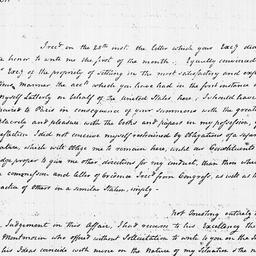 Sir
I rec'd on the 28th inst. the letter which your Exc'y did
honor to write me the first of the month. Equally convinced
Exc'y of the propriety of settling in the most satisfactory and
manner the acc'ts which you have had in the first instance
myself latterly on behalf of the United States here, I should have
to Paris in consequence of your summons with the great
alacrity and pleasure, with the books and papers in my possession,
I did not conceive myself restrained by Obligations of a
nature, which will oblige me to remain here, until our Constituents
judge proper to give me other directions for my conduct, than those when
a commission and letter of Credence Issued from Congress, as well as
of others in a similar Station, imply.
Not Trusting entirely
Judgement in this Affair, I had recourse to his Excellency the
Montmorin who offered without Sollicitation to write to you on the
his Ideas coincide with mine on the Nature of my Situation & the